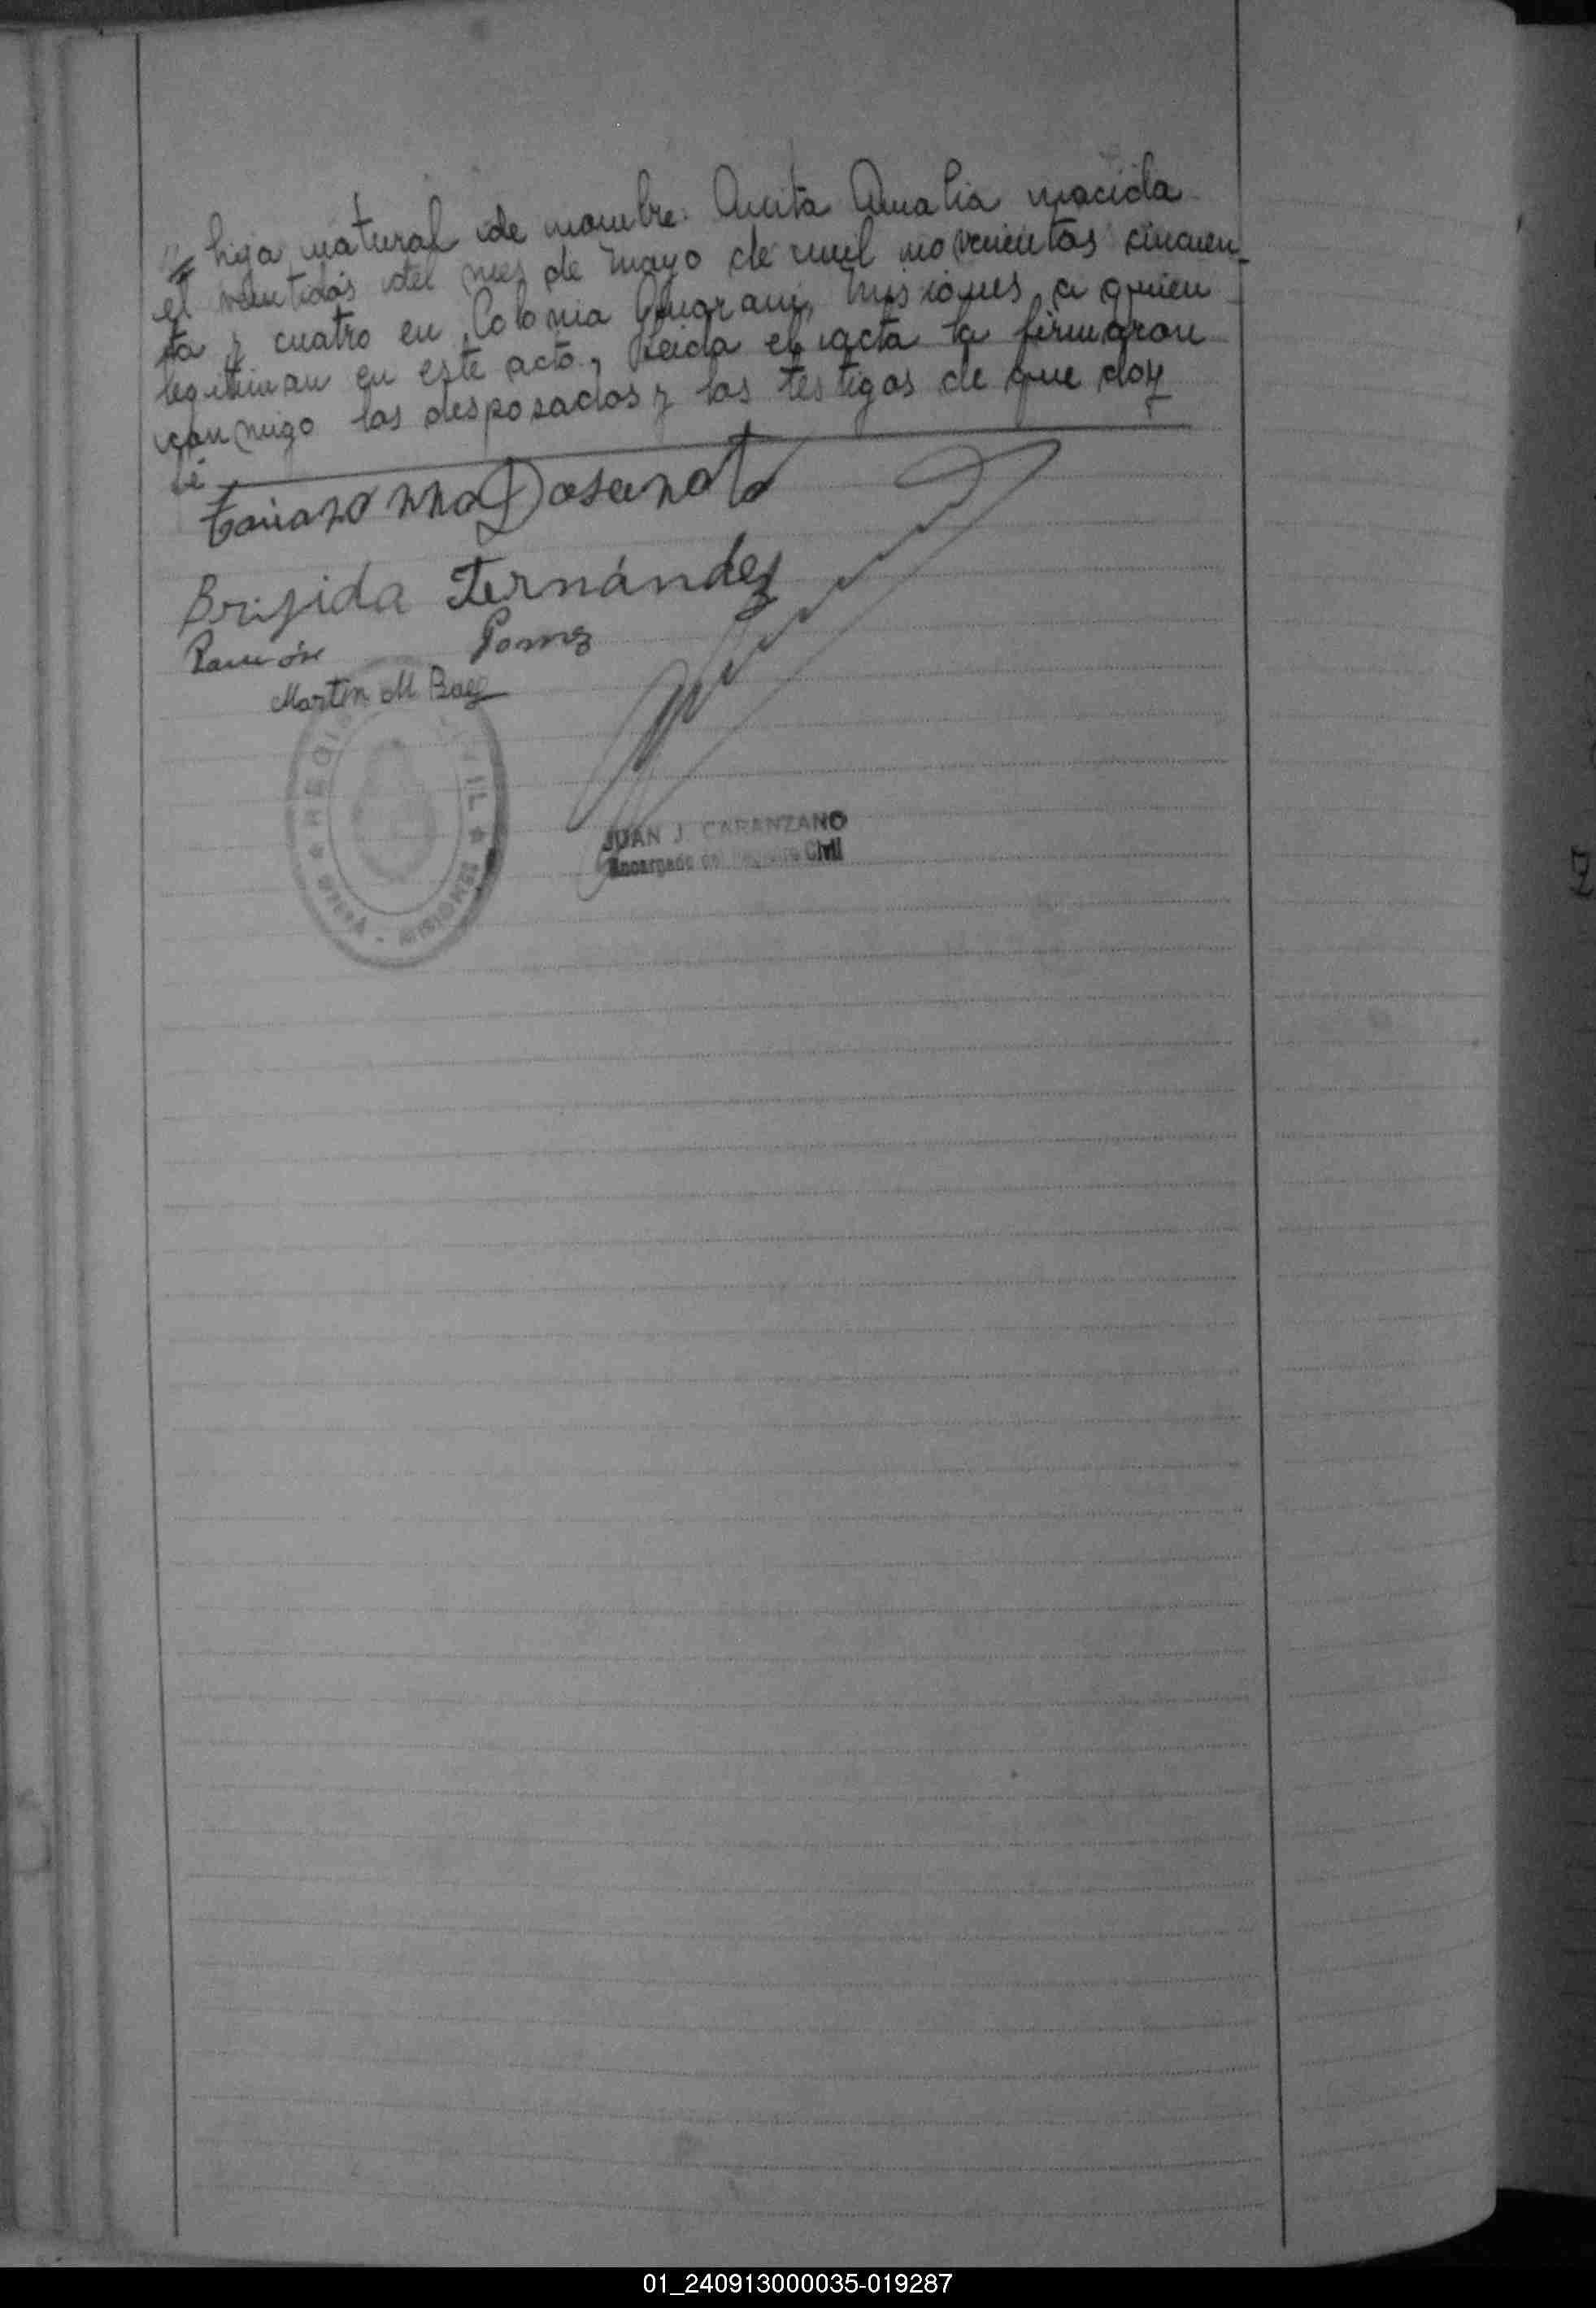 hija natural de nombre: Anita Amalia nacida
el veintidós del mes de Mayo de mil novecientos cincuen-
ta y cuatro en Colonia Guarani, Misiones, a quien
legitiman en este acto, Leida el acta la firmaron
conmigo los desposados y los testigos de que doy
fé
Brijida Fernández
Ramón Gomez
Martin M Baez
REGISTRO CIVIL
JUAN J. CARANZANO
Encargado del Registro Civil
01_240913000035-019287